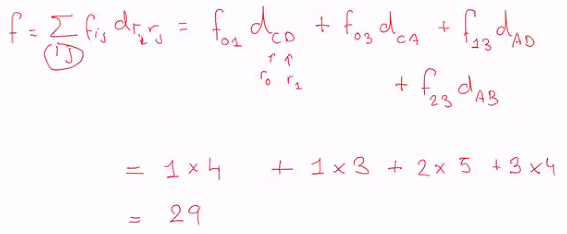 f = Σ_{ij} f_{ij} d_{r_i r_j} = f_{01} d_{CD} + f_{03} d_{CA} + f_{13} d_{AD}
↑ ↑
r_0 r_1
+ f_{23} d_{AB}
= 1 × 4 + 1 × 3 + 2 × 5 + 3 × 4
= 29